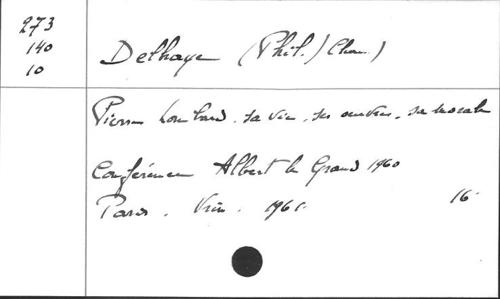 273
140
10
Delhaye (Phil.) (Chan.)
Pierre Lombard. sa vie, ses œuvres, sa morale
Conférence Albert le Grand 1960
Paris. Vrin. 1961. 16-